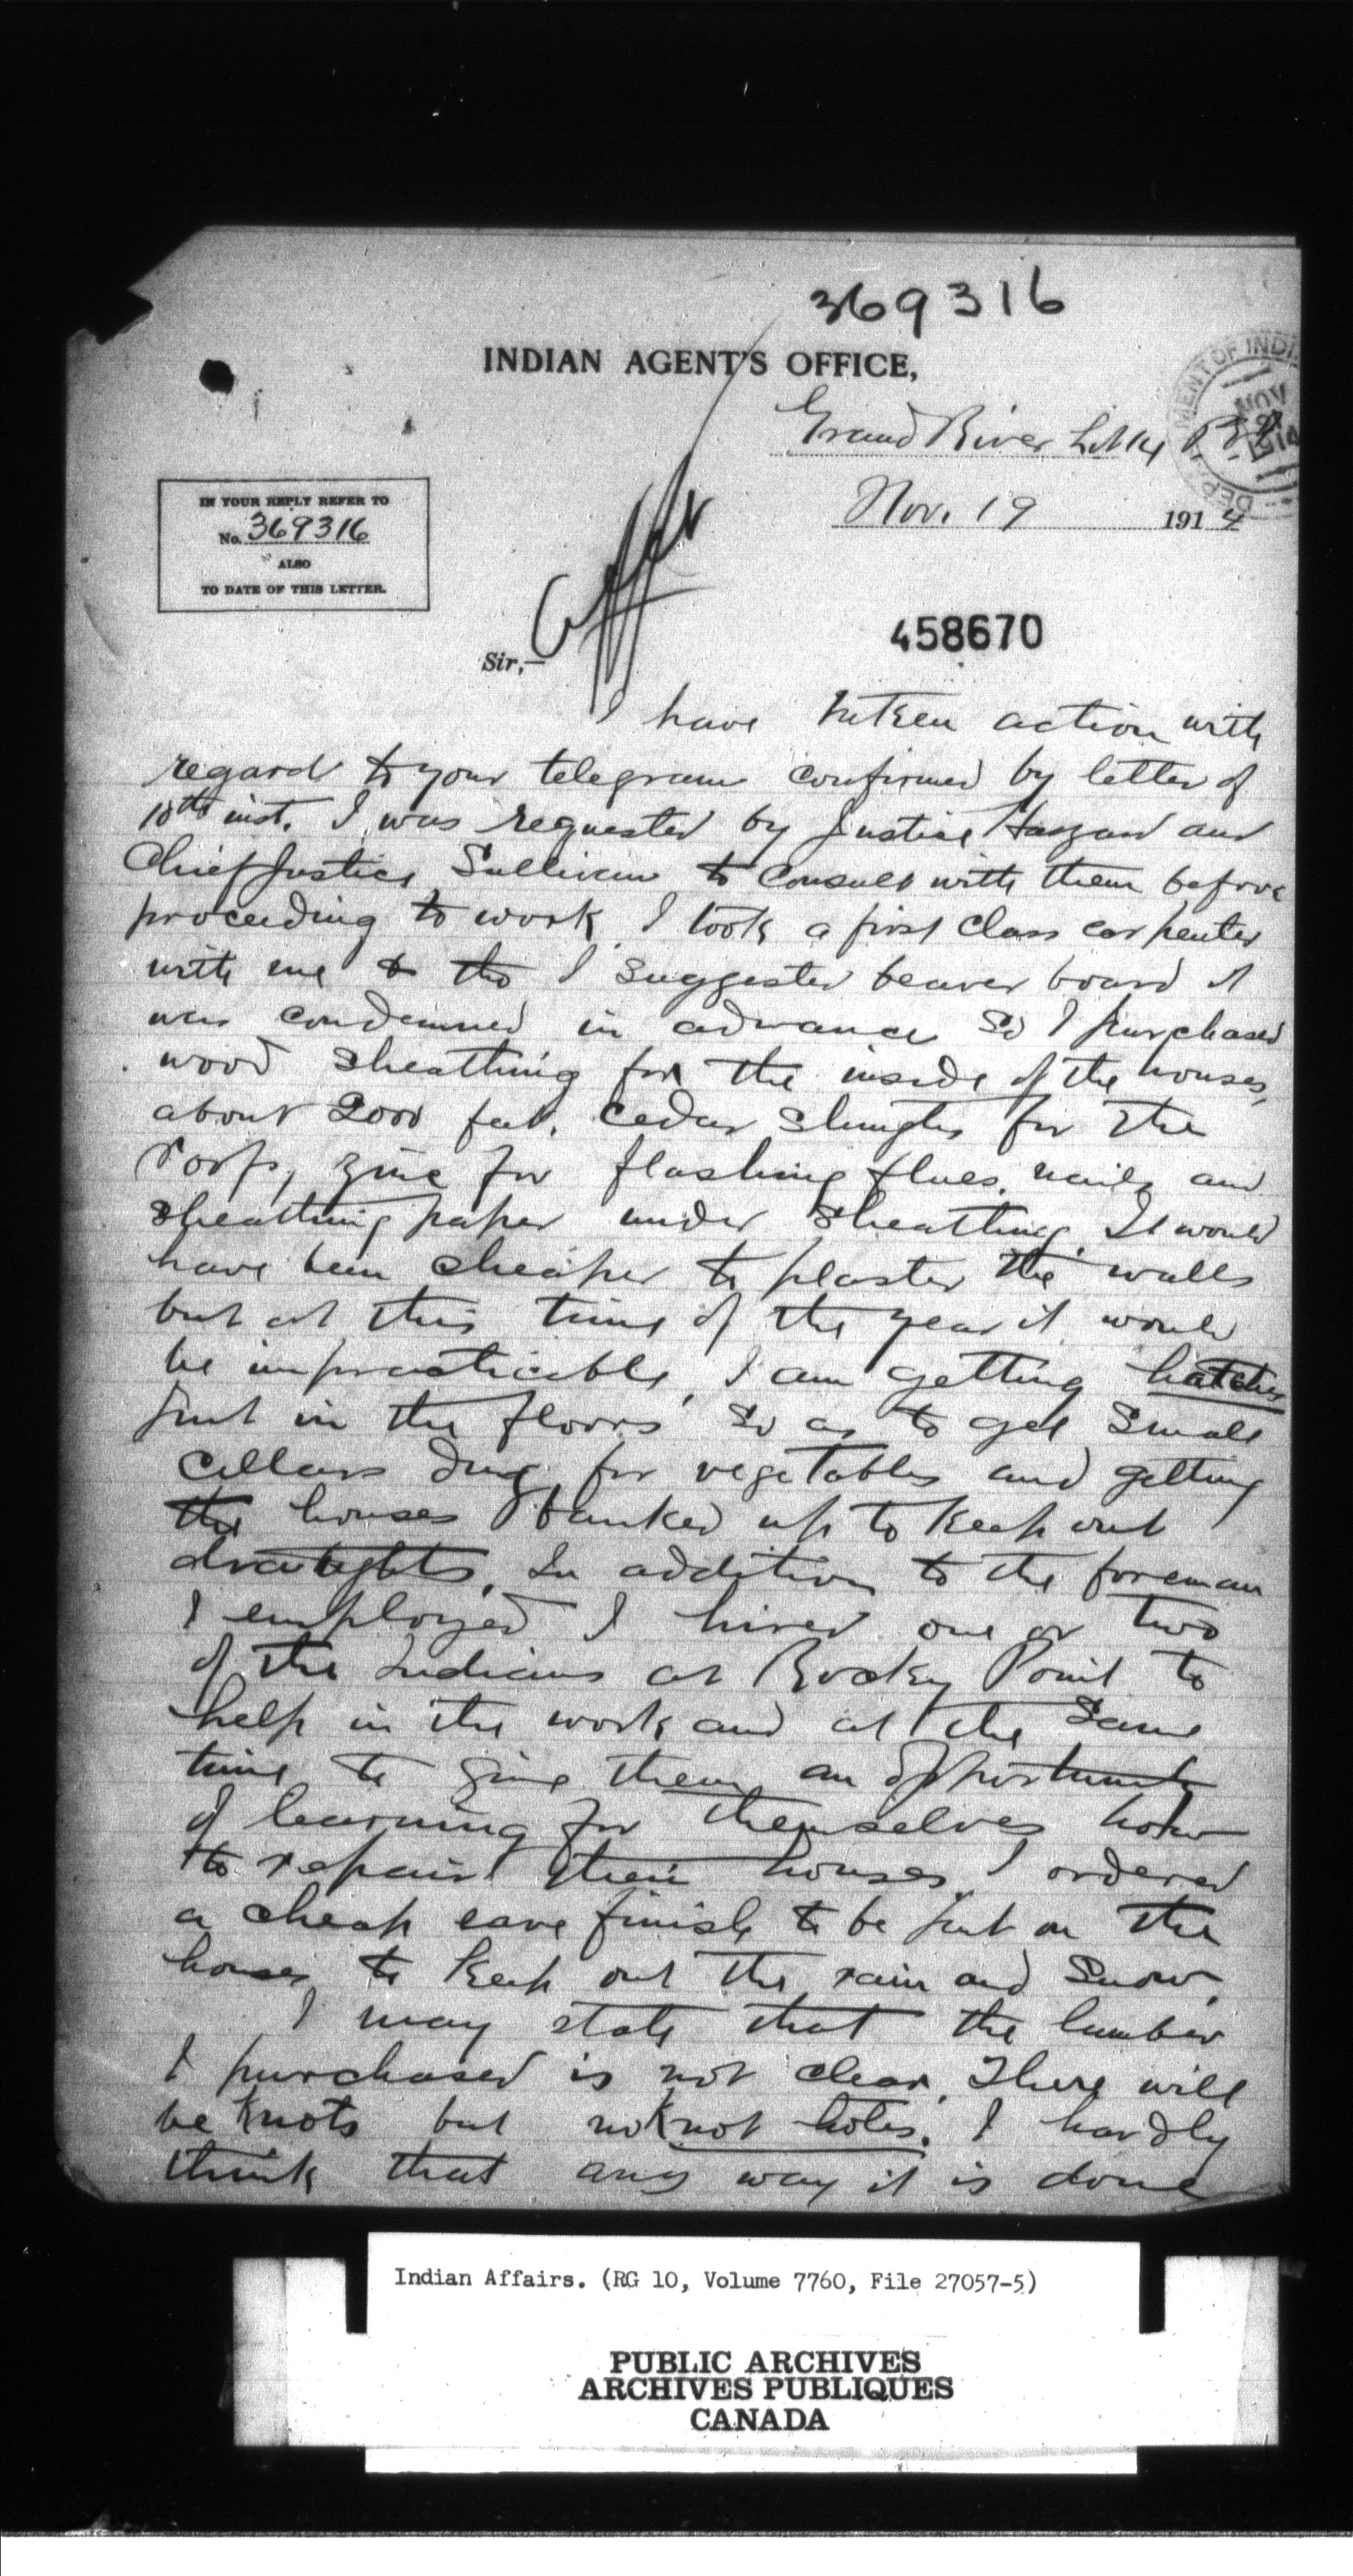 369316
INDIAN AGENT'S OFFICE,
MENT OF INDI
DEP
NOV
21
1914
Grand River Lot 14 P.E.I.
Nov. 19 1914
IN YOUR REPLY REFER TO
No. 369316
ALSO
TO DATE OF THIS LETTER.
458670
Sir,—
I have taken action with
regard to your telegram confirmed by letter of
10th inst. I was requested by Justice Haszard and
Chief Justice Sullivan to consult with them before
proceeding to work. I took a first class carpenter
with me & tho I suggested beaver board it
was condemned in advance so I purchased
wood sheathing for the inside of the houses,
about 2000 feet, cedar shingles for the
roofs, zinc for flashing flues, nails and
sheathing paper under sheathing. It would
have been cheaper to plaster the walls
but at this time of the year it would
be impracticable, I am getting hatches
put in the floors so as to get small
cellars dug for vegetables and getting
the houses banked up to keep out
draughts. In addition to the foreman
I employed I hired one or two
of the Indians at Rocky Point to
help in the work and at the same
time to give them an opportunity
of learning for themselves how
to repair their houses. I ordered
a cheap eave finish to be put on the
houses to keep out the rain and snow.
I may state that the lumber
I purchased is not clear. There will
be knots but no knot holes. I hardly
think that any way it is done
Indian Affairs. (RG 10, Volume 7760, File 27057-5)
PUBLIC ARCHIVES
ARCHIVES PUBLIQUES
CANADA